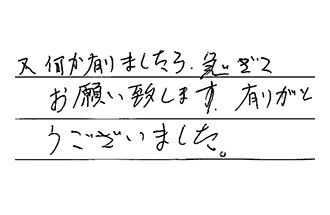 又何か有りましたら.急いぎて
お願い致します.有りがと
うございました。